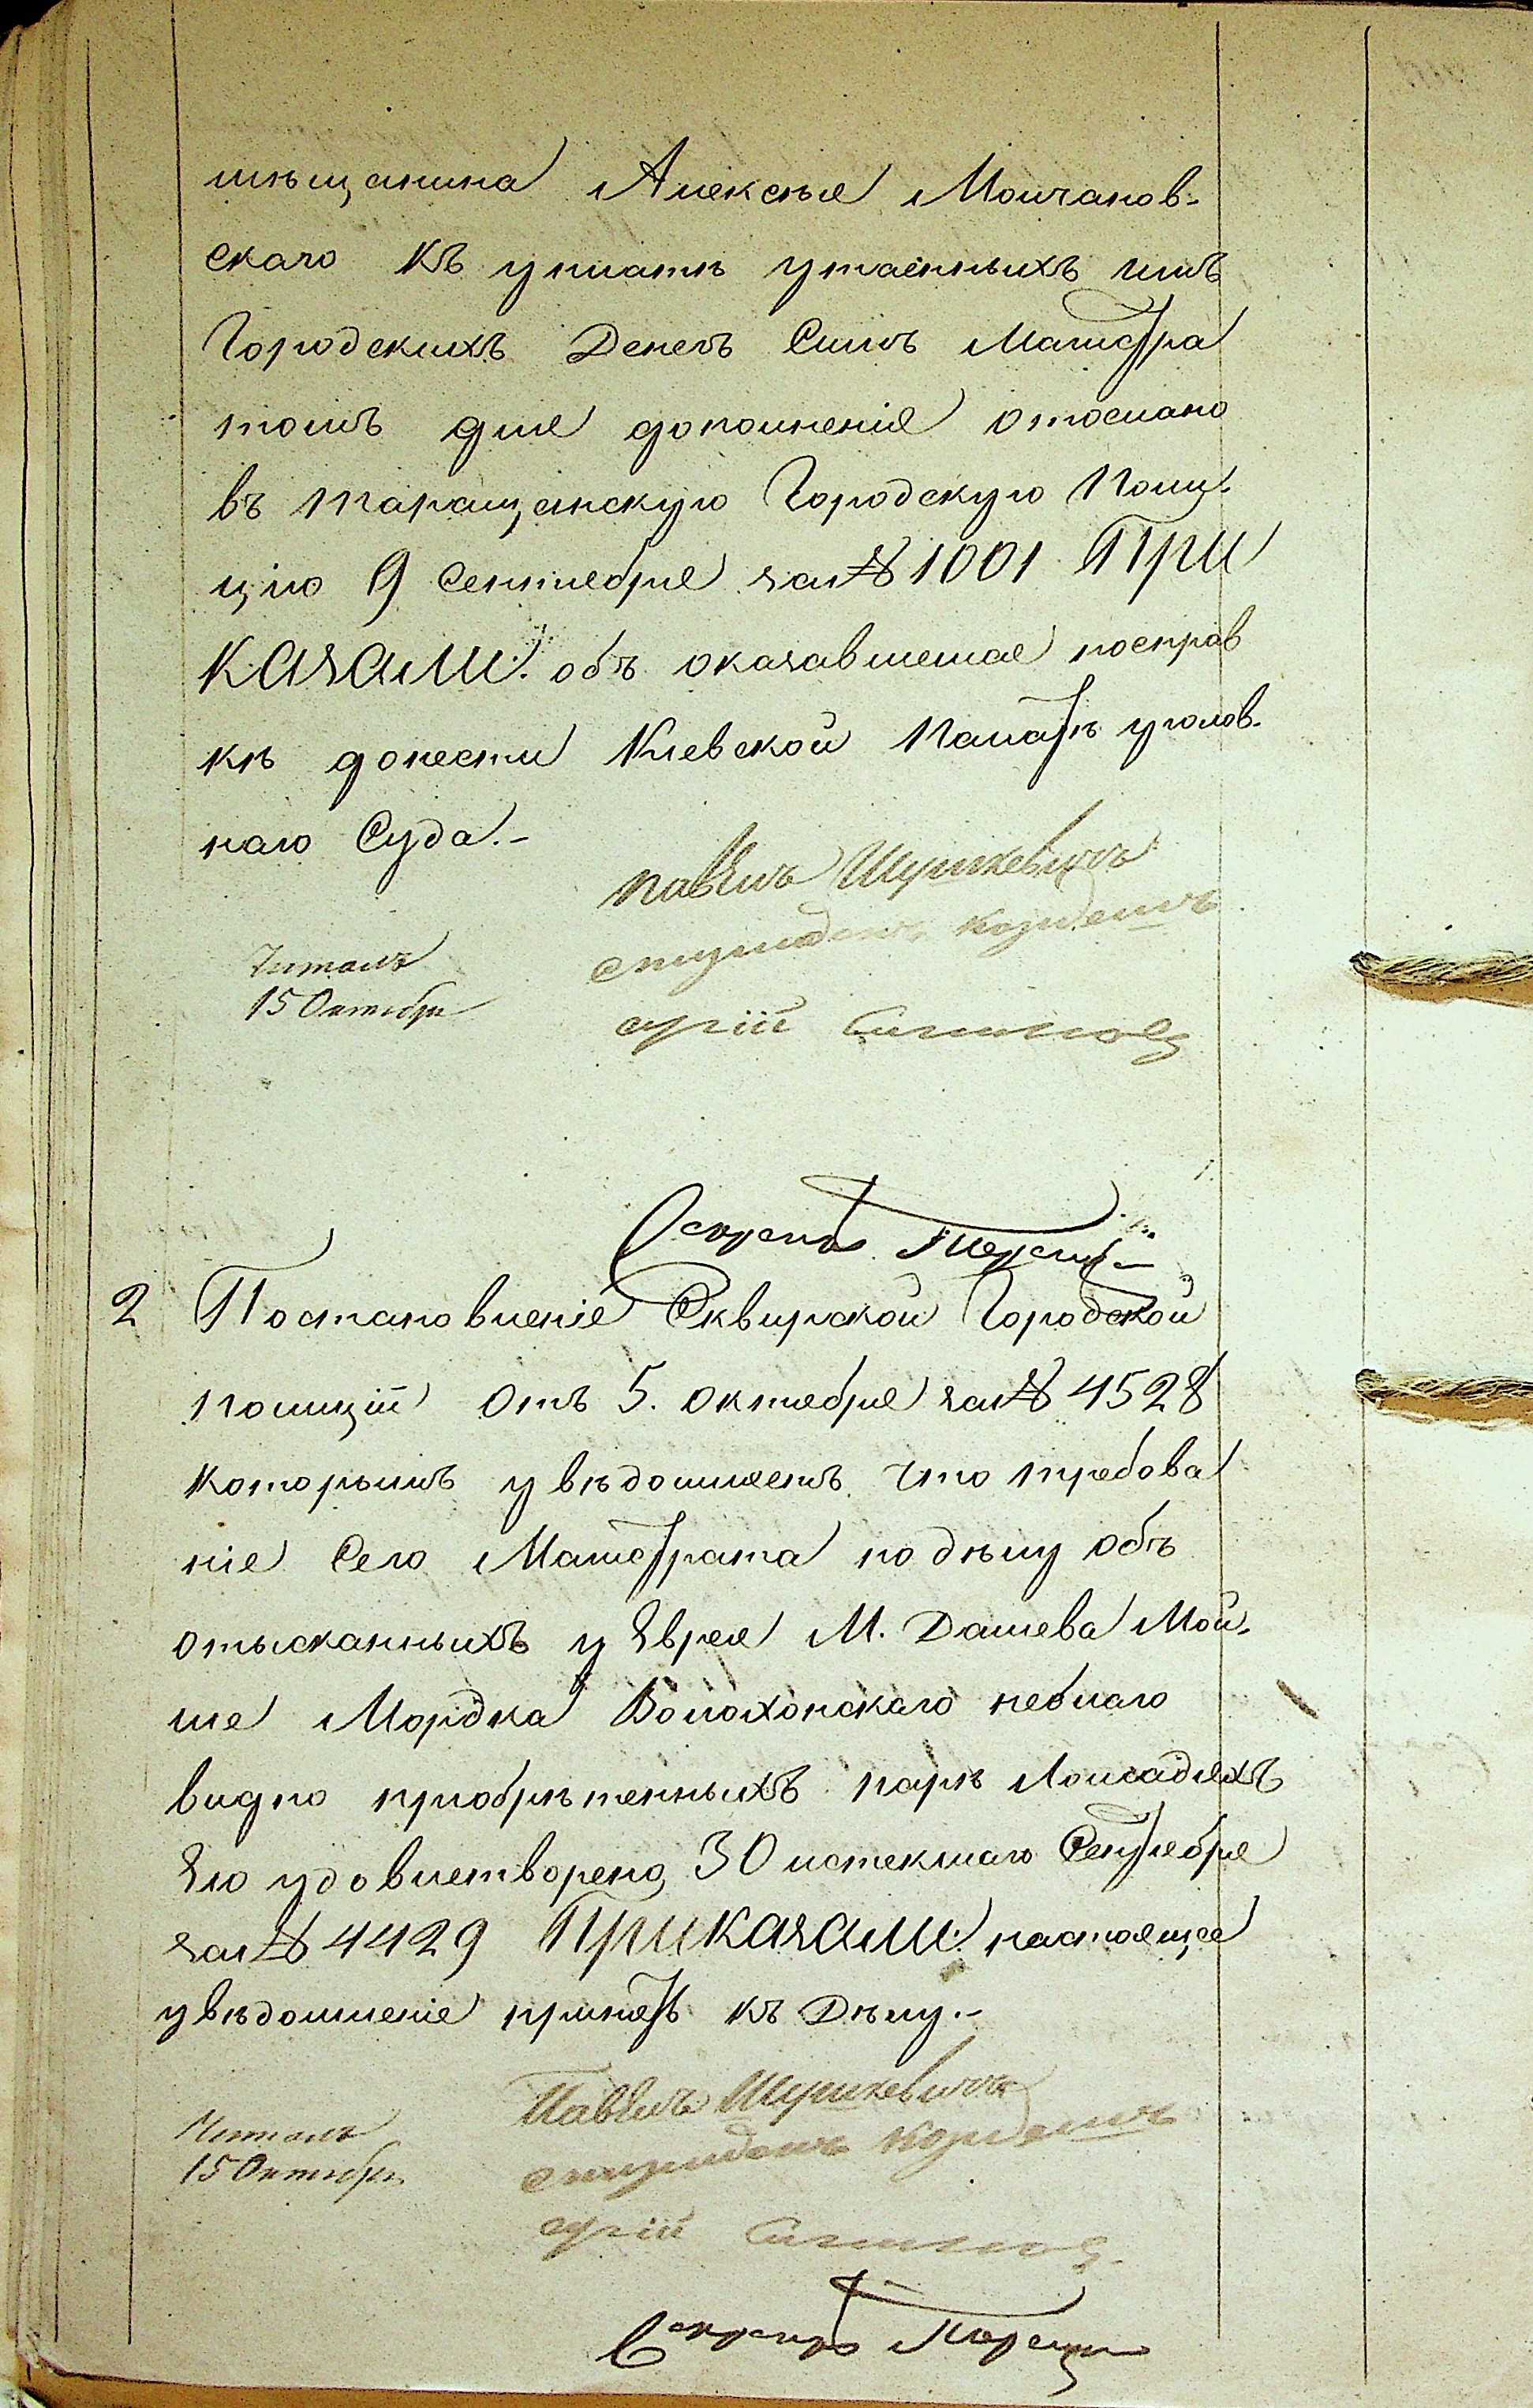 мѣщанина Алексѣя Молчанов-
скаго къ уплатѣ утаенныхъ имъ
Городскихъ Денегъ Симъ Магистра
томъ для дополненія отослано
въ Таращанскую Городскую Поли-
цію 9 Сентября за № 1001 При
казали: объ оказавшемся посправ
кѣ донести Кіевской Палатѣ уголов-
наго Суда.-
Павелъ Шулькевичъ
Читалъ
15 Октября
юрій
Секретарь
2 Постановленіе Сквирской Городской
полиціи отъ 5. октября за № 4528
которымъ увѣдомляетъ что требова
ніе Сего Магистрата по дѣлу объ
отысканныхъ у Еврея М. Дашева Мой-
ше Мордка Волохонскаго небнаго
видно пріобрѣтенныхъ парѣ Лошадяхъ
Ею удовлетворено 30 истекшаго Сентября
за № 4429 Приказали: настоящее
увѣдомленіе принять къ Дѣлу.-
Павелъ Шулькевичъ
Читалъ
15 Октября
юрій
Секретарь